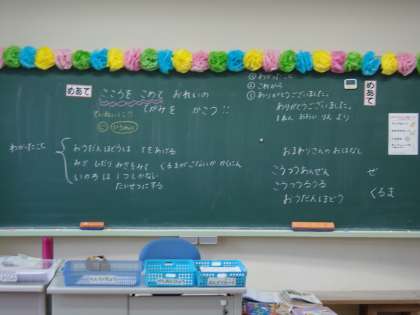 めあて
こころをこめて おれいの
てがみを かこう!!
わかったこと
おうだんほどうは てをあげる
みぎ ひだり みぎをみて くるまがこないか かくにん
いのちは 1つしかない
たいせつにする
① わかったこと
② これから
③ ありがとうございました。
ありがとうございました。
より
めあて
おまわりさんのおはなし
こうつうあんぜん
こうつうるうる
おうだんほどう
ぜ
くるま